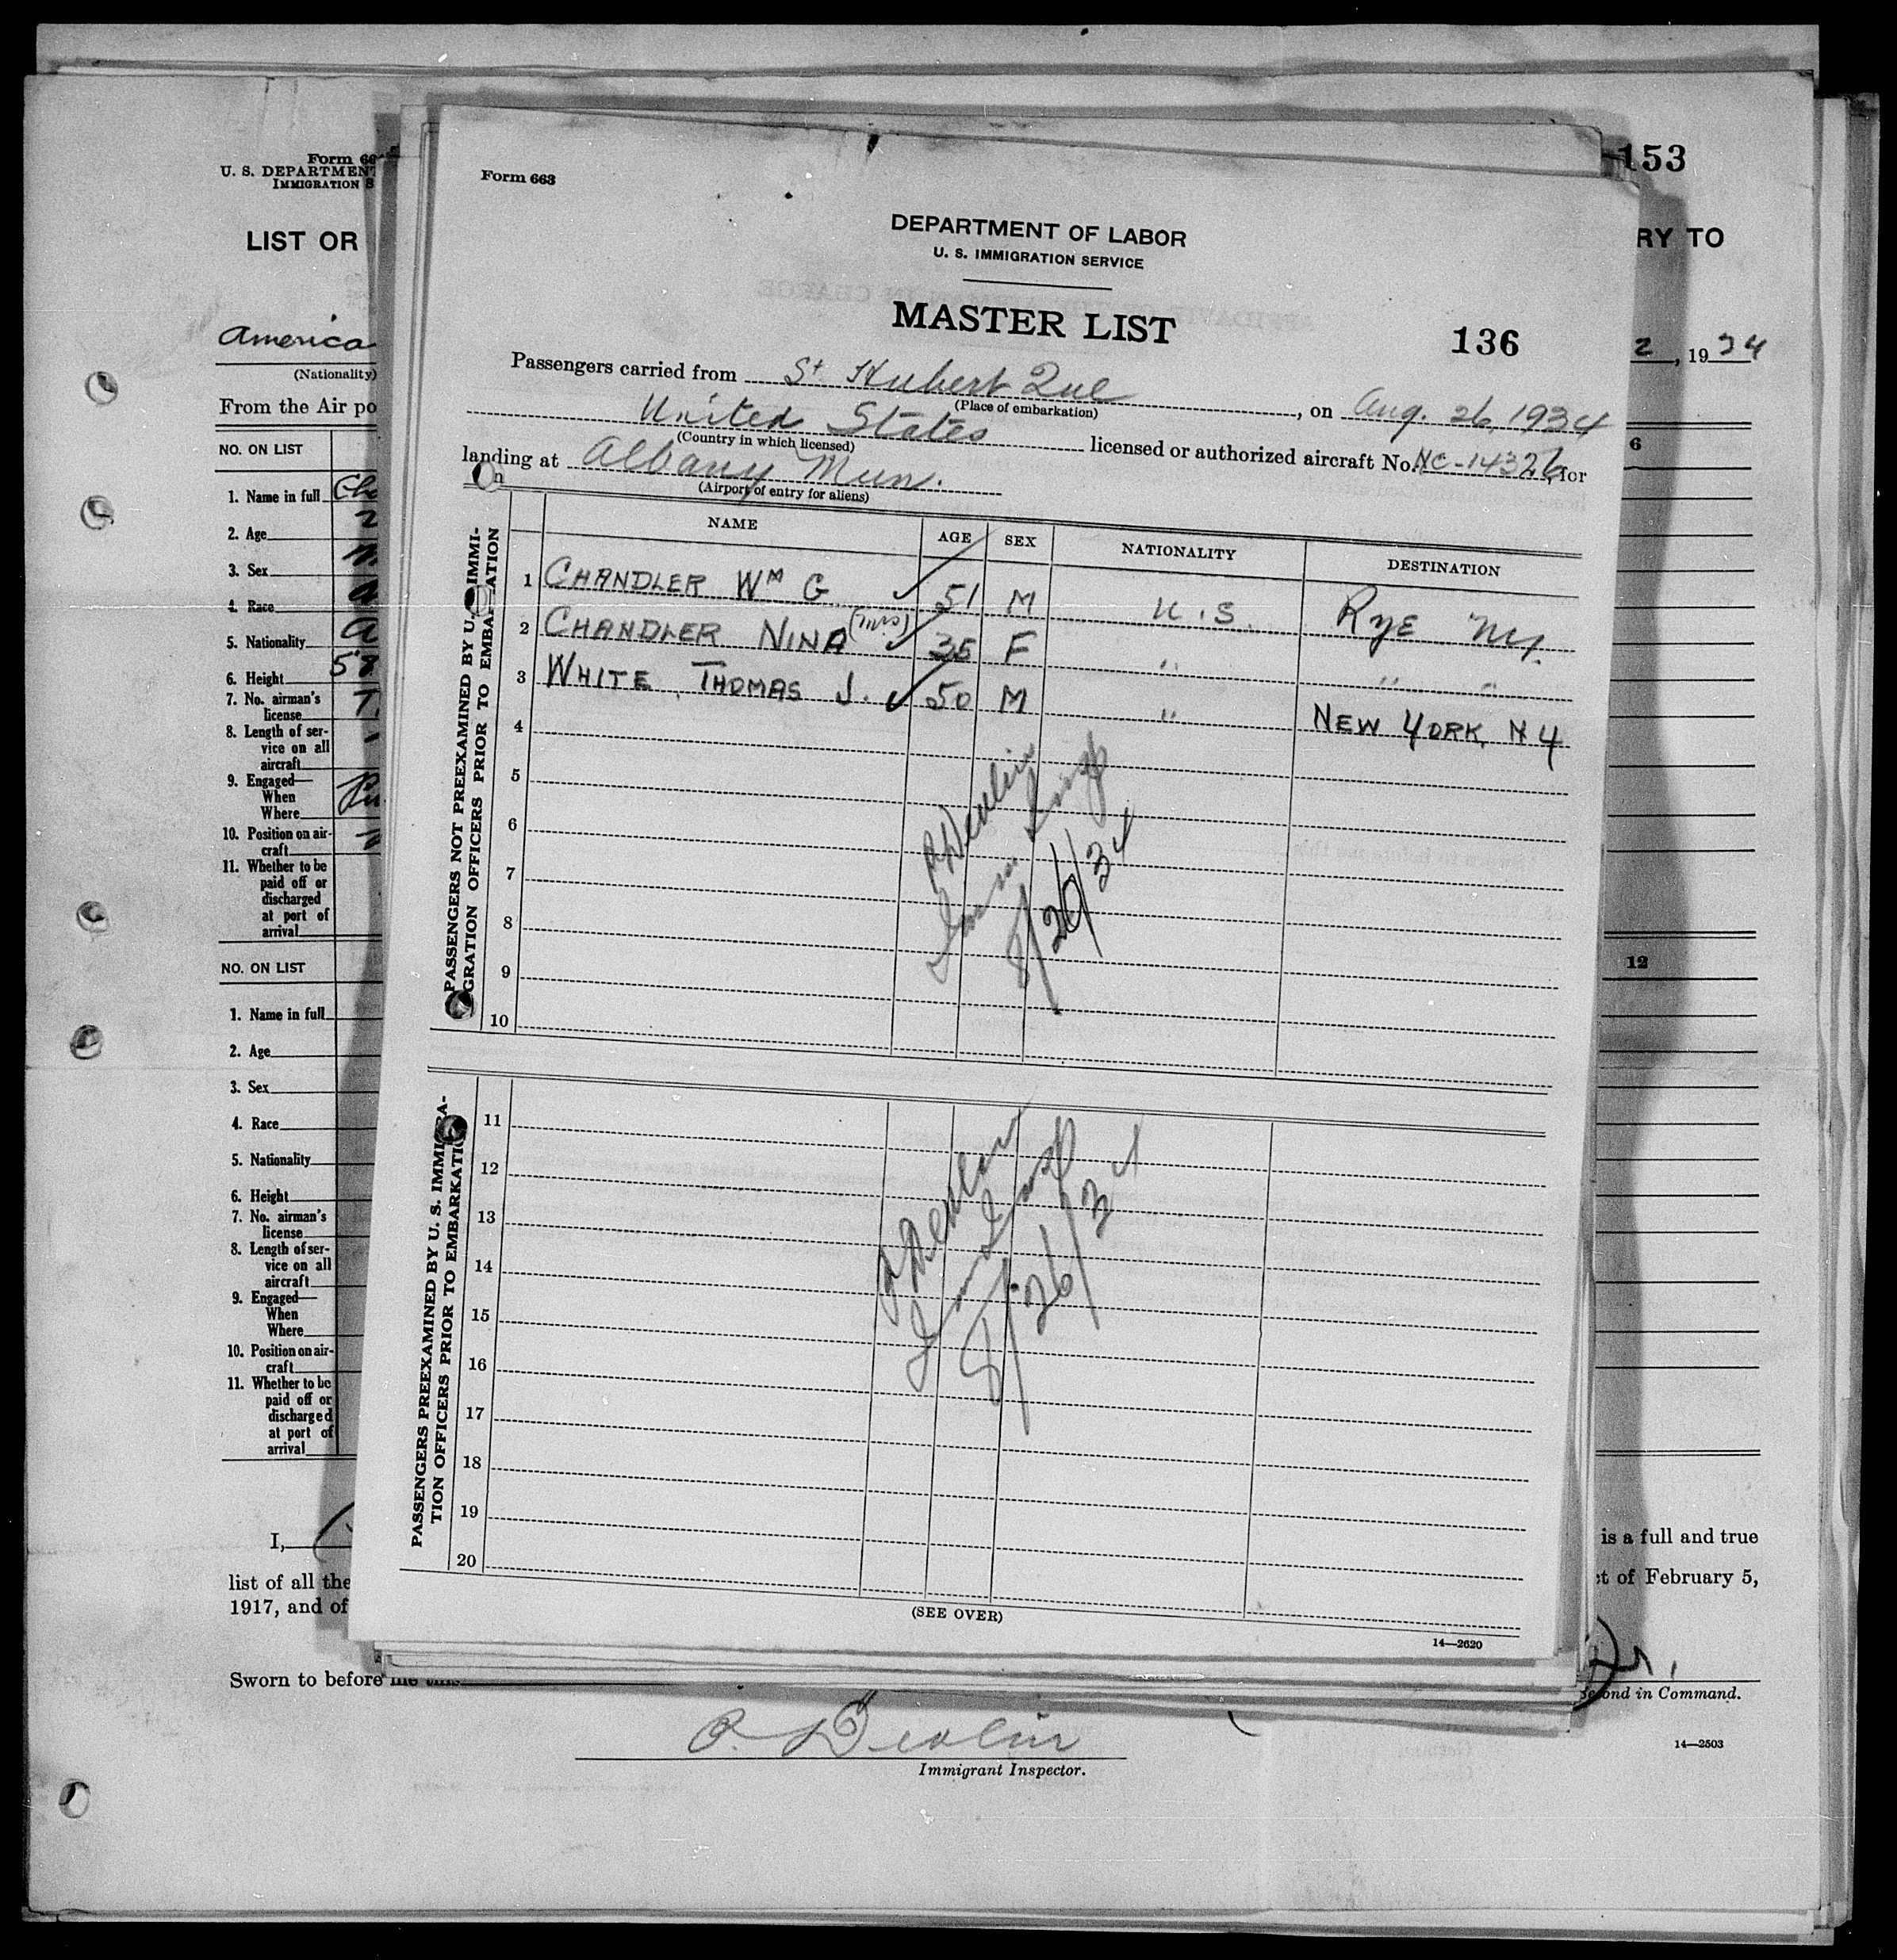 Form 66
U. S. DEPARTMENT
IMMIGRATION S
LIST OR
America
(Nationality)
From the Air po
NO. ON LIST
1. Name in full Cha
2. Age 2
3. Sex M
4. Race
5. Nationality a
6. Height 5'8
7. No. airman's
license T.
8. Length of ser-
vice on all
aircraft
9. Engaged—
When
Where
10. Position on air-
craft
11. Whether to be
paid off or
discharged
at port of
arrival
NO. ON LIST
1. Name in full
2. Age
3. Sex
4. Race
5. Nationality
6. Height
7. No. airman's
license
8. Length of ser-
vice on all
aircraft
9. Engaged—
When
Where
10. Position on air-
craft
11. Whether to be
paid off or
discharged
at port of
arrival
I,
list of all the
1917, and of
Sworn to before me this
Form 663
DEPARTMENT OF LABOR
U. S. IMMIGRATION SERVICE
MASTER LIST
136
Passengers carried from St Hubert Que, on Aug. 26, 1934
(Place of embarkation)
United States licensed or authorized aircraft No. NC-14326, for
(Country in which licensed)
landing at Albany Mun.
(Airport of entry for aliens)
NAME AGE SEX NATIONALITY DESTINATION
PASSENGERS NOT PREEXAMINED BY U. S. IMMI-
GRATION OFFICERS PRIOR TO EMBARKATION
1 CHANDLER WM G 51 M U.S. RYE NY.
2 CHANDLER NINA (Mrs) 35 F " " "
3 WHITE, THOMAS J. 50 M " NEW YORK, NY
4
5
6
7
8
9
10
P Devlin
Imm Insp
8/26/34
PASSENGERS PREEXAMINED BY U. S. IMMIGRA-
TION OFFICERS PRIOR TO EMBARKATION
11
12
13
14
15
16
17
18
19
20
P Devlin
Imm Insp
8/26/34
(SEE OVER)
14—2620
153
RY TO
2, 1934
6
12
is a full and true
ct of February 5,
Jr.
Second in Command.
P. Devlin
Immigrant Inspector.
14—2503